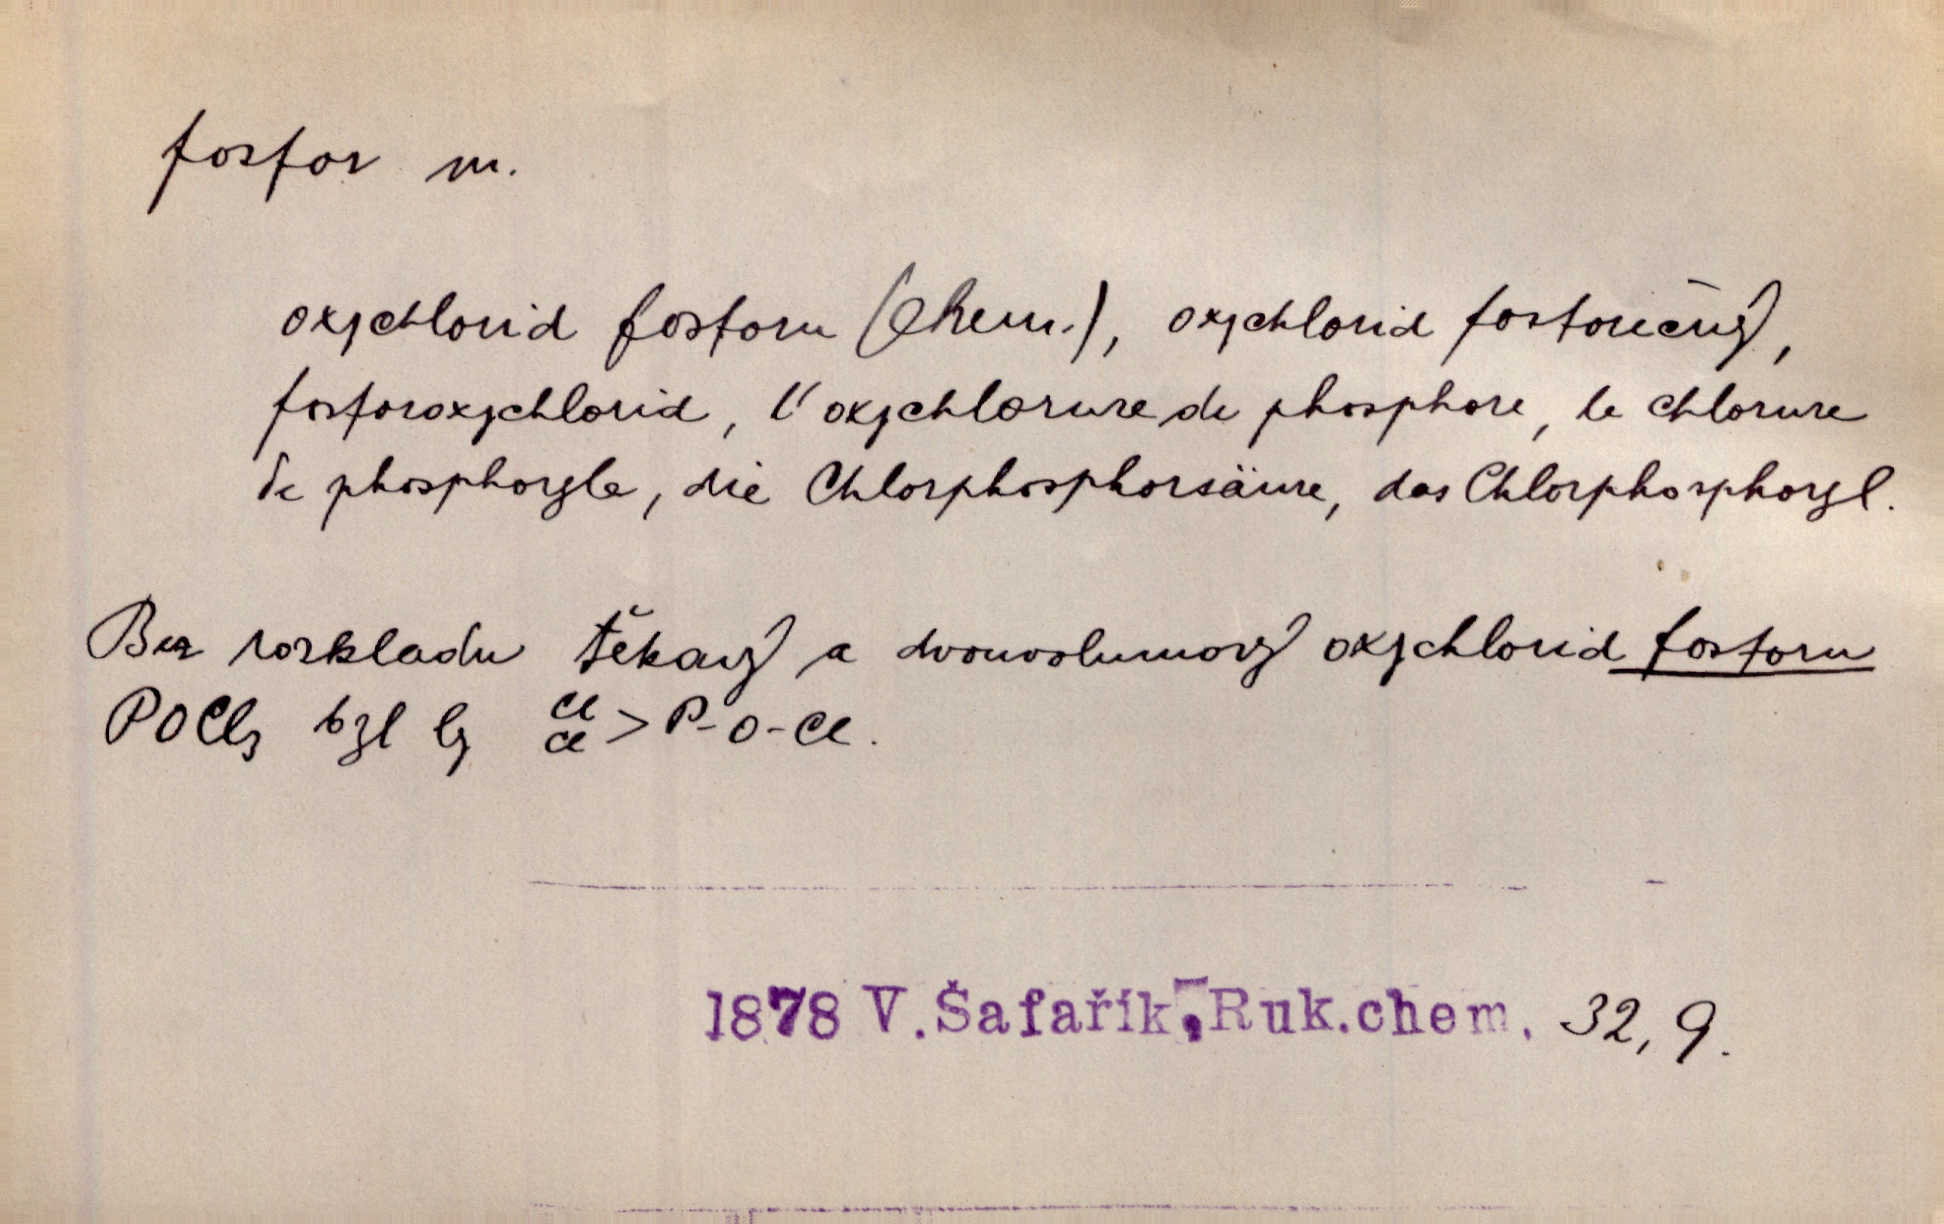 fosfor m.
oxychlorid fosforu (chem.), oxychlorid fosforečný,
fosforoxychlorid, l'oxychlorure de phosphore, le chlorure
de phosphoryle, die Chlorphosphorsäure, das Chlorphosphoryl.
Bez rozkladu těkavý a dvouvolumový oxychlorid fosforu
POCl3 byl by Cl Cl > P-O-Cl.
1878 V.Šafařík, Ruk.chem. 32, 9.